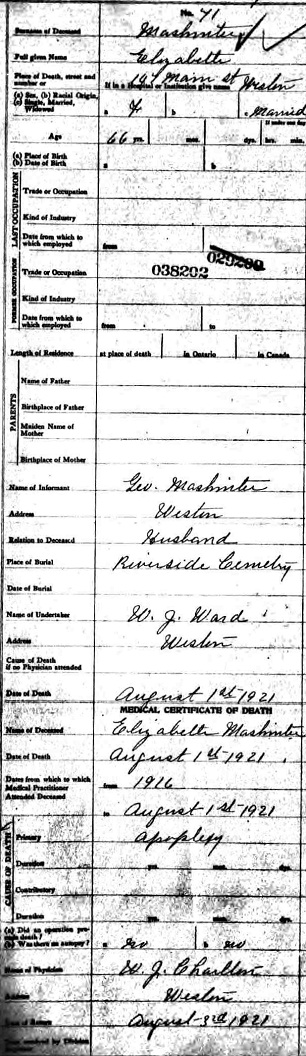 No. 71
Surname of Deceased Mashinter
Full given Name Elizabeth
Place of Death, street and number or 194 Main st Weston
If in a Hospital or Institution give name
(a) Sex, (b) Racial Origin, (c) Single, Married, Widowed a F. b c Married
If under one day
Age 66 yrs. mos. dys. hrs. min.
(a) Place of Birth
(b) Date of Birth a b
LAST OCCUPATION
Trade or Occupation
Kind of Industry
Date from which to which employed from
029200
FORMER OCCUPATION
Trade or Occupation 038202
Kind of Industry
Date from which to which employed from to
Length of Residence at place of death in Ontario in Canada
PARENTS
Name of Father
Birthplace of Father
Maiden Name of Mother
Birthplace of Mother
Name of Informant Geo. Mashinter
Address Weston
Relation to Deceased Husband
Place of Burial Riverside Cemetry
Date of Burial
Name of Undertaker W. J. Ward
Address Weston
Cause of Death if no Physician attended
Date of Death August 1st 1921
MEDICAL CERTIFICATE OF DEATH
Name of Deceased Elizabeth Mashinter
Date of Death August 1st 1921.
Dates from which to which Medical Practitioner Attended Deceased from 1916
to August 1st 1921
CAUSE OF DEATH
Primary Apoplexy
Duration yrs. mos. dys.
Contributory
Duration yrs. mos. dys.
(a) Did an operation precede death?
(b) Was there an autopsy? a no b no
Name of Physician W. J. Charlton
Address Weston
Date of Return August 3rd 1921
Date received by Division Registrar